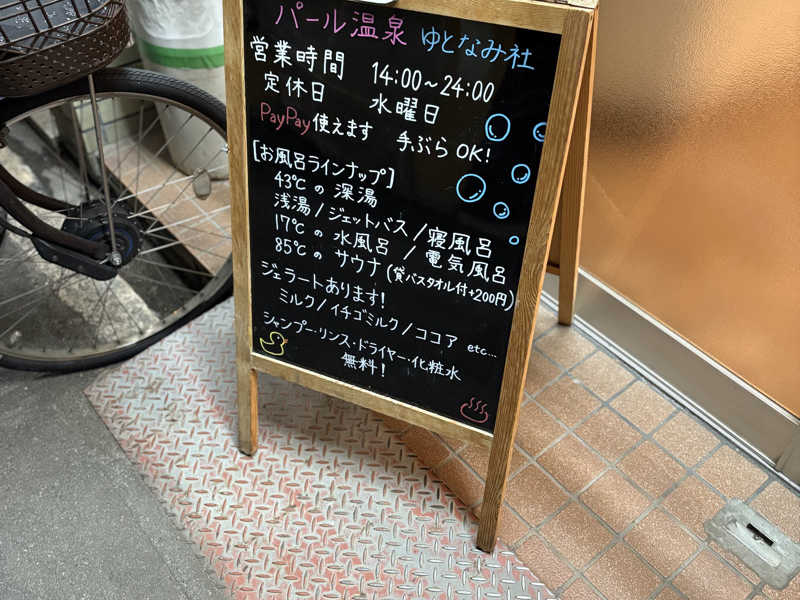 パール温泉 ゆとなみ社
営業時間 14:00～24:00
定休日 水曜日
PayPay使えます 手ぶらOK!
[お風呂ラインナップ]
43℃の深湯
浅湯/ジェットバス/寝風呂
17℃の水風呂/電気風呂
85℃のサウナ(貸バスタオル付+200円)
ジェラートあります!
ミルク/イチゴミルク/ココア etc...
シャンプー・リンス・ドライヤー・化粧水
無料!